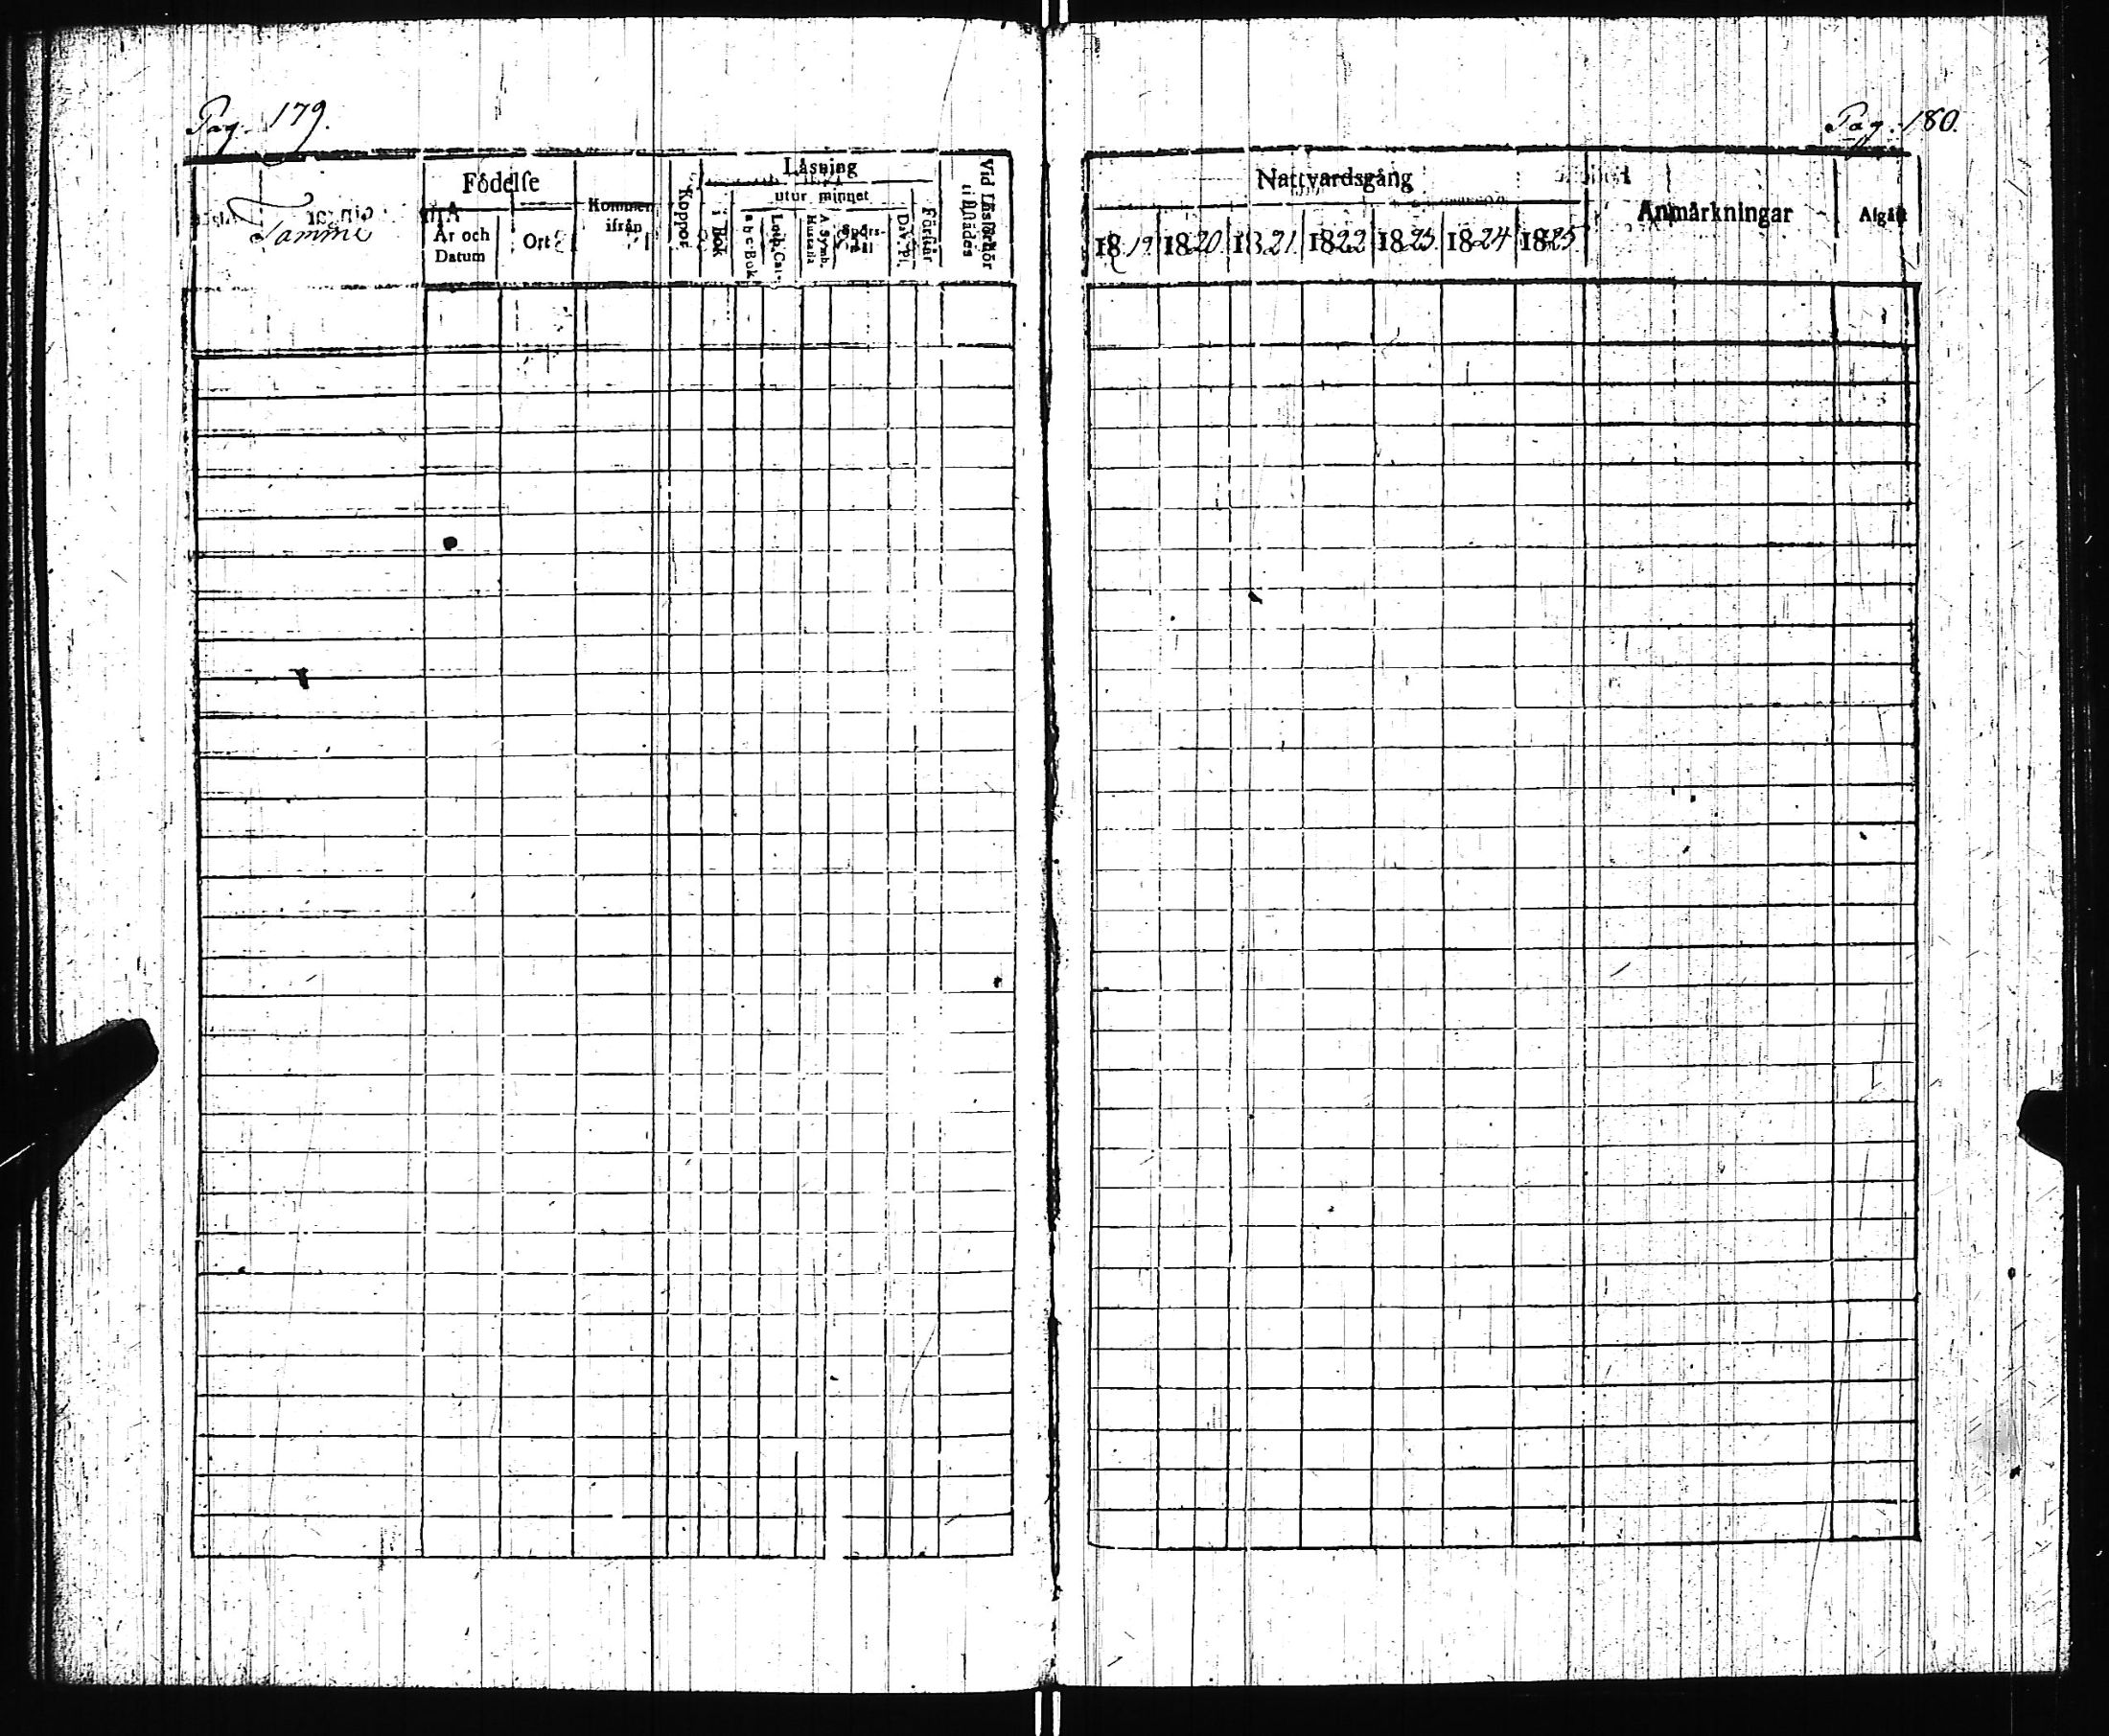 Pag. 179.
Tamme
Födelse
År och Datum
Ort
Kommen ifrån
Koppor
Läsning
i Bok
utur minnet
a b c Bok
Luth. Cat.
A. Symb. Hustafla
Spörsmål
Dav. Ps.
Förstår
Vid Läsförhör tillstädes
Pag. 180.
Nattvardsgång
1819. 1820. 1821. 1822 1823. 1824 1825
Anmärkningar
Afgått